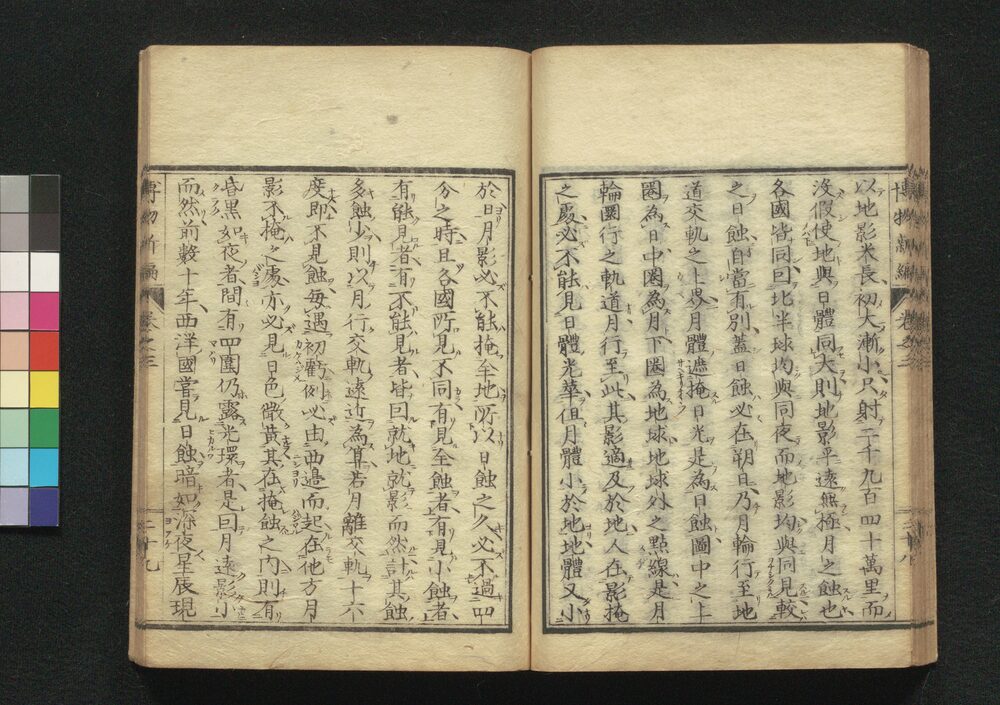 博物新編 卷之三
以地影米長初大漸小尺射二千九百四十萬里而
沒假使地與日體同大則地影平遠無極月之蝕也
各國皆同回北半球均與同夜而地影均與同見較
之日蝕自當有別蓋日蝕必在朔日乃月輪行至地
道交軌之上界月體遮掩日光是為日蝕圖中之上
圈為日中圈為月下圈為地球地球外之點線是月
輪圜行之軌道月行至此其影適及於地人在影掩
之處必不能見日體光華但月體小於地地體又小
於日月影必不能掩全地所以日蝕之久必不過四
分之時且各國所見不同有見全蝕者有見小蝕者
有能見者有不能見者皆回就地就影而然計其蝕
多蝕少則以月行交軌遠近為算若月離交軌十六
度即不見蝕每遇初虧例必由西邊而起在他方月
影不掩之處亦必見日色微黃其在掩蝕之內則有
昏黑如夜者間有四圍仍露光環者是回月遠影小
而然前數十年西洋國嘗見日蝕暗如深夜星辰現
博物新編 卷之三 二十九